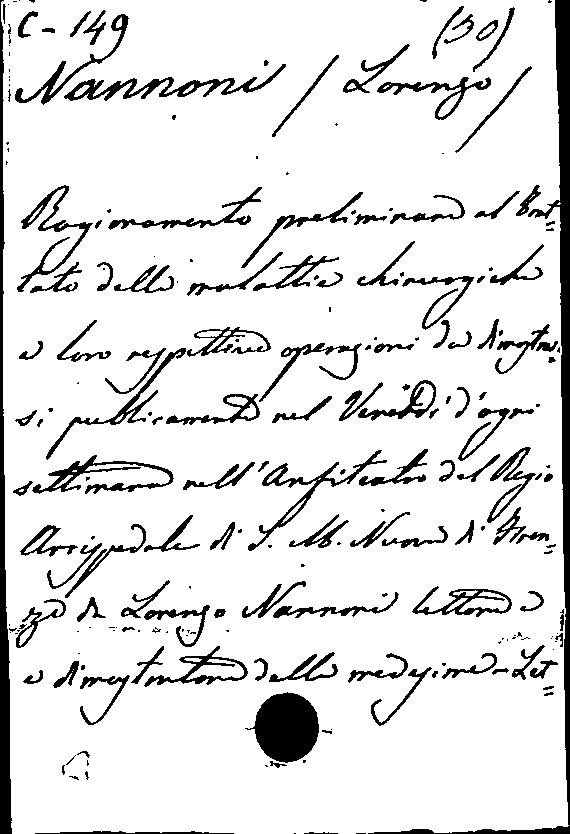 C - 149 (30)
Nannoni / Lorenzo /
Ragionamento preliminare al Trat=
tato delle malattie chirurgiche
e loro respettive operazioni da dimostrar=
si pubblicamente nel Venerdì d'ogni
settimana nell'Anfiteatro del Regio
Arcispedale di S. M. Nuova di Firen=
ze da Lorenzo Nannoni lettore e
e dimostratore delle medesime - Let=